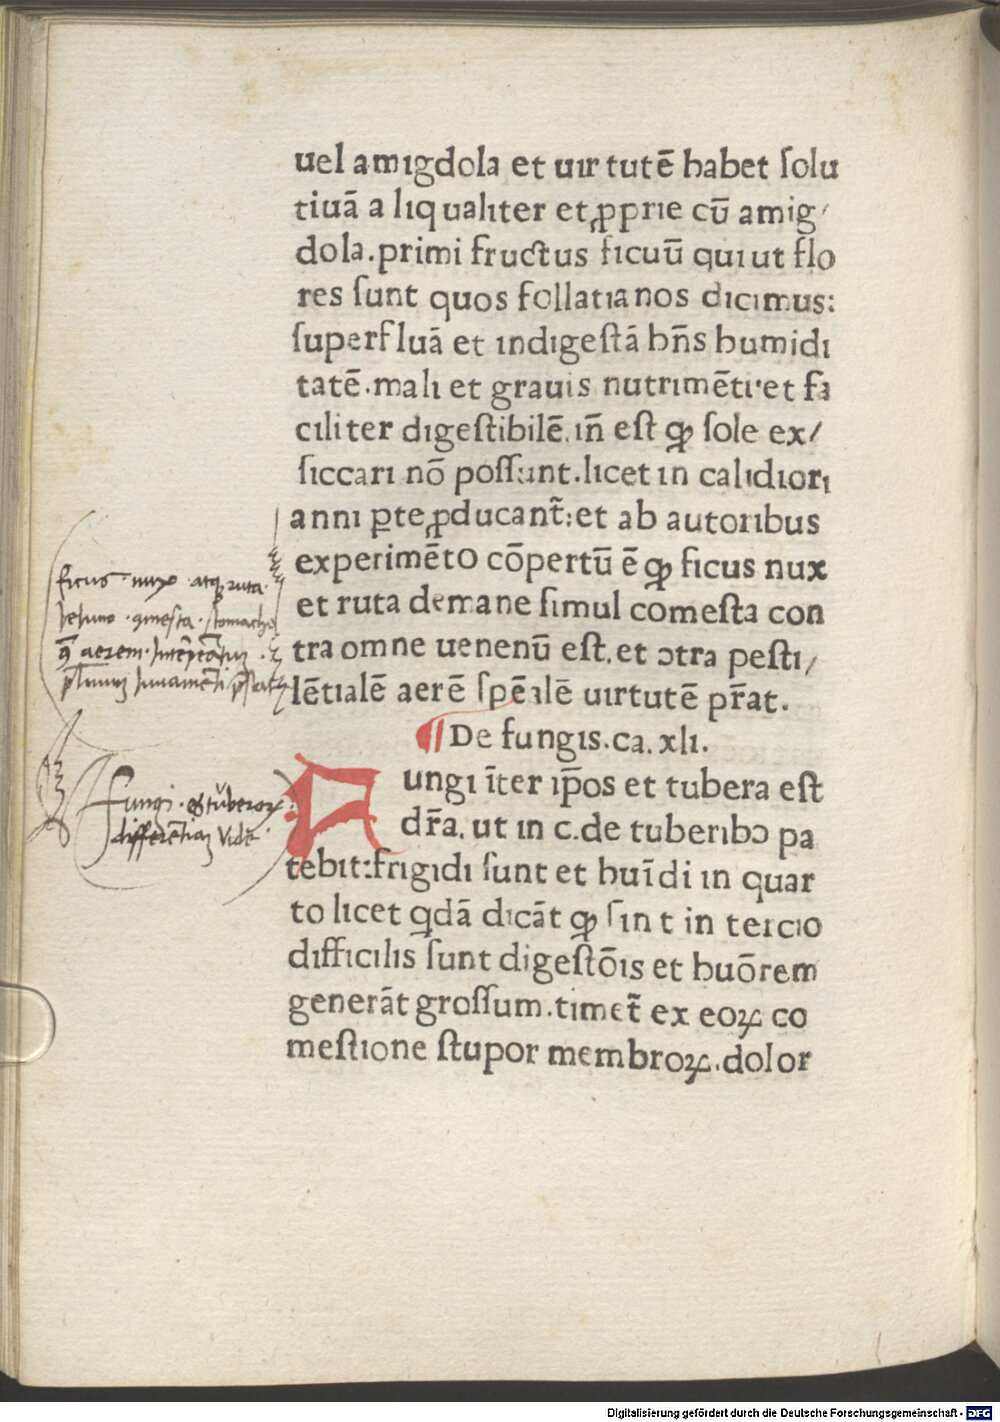 uel amigdola et uirtutē habet ſolu
tiuā aliqualiter et ꝓprie cū amig/
dola.primi fructus ficuū qui ut flo
res ſunt quos follatianos dicimus:
ſuperfluā et indigeſtā hn̄s humidi
tatē.mali et grauis nutrimēti·et fa
ciliter digeſtibilē.in̄ eſt ꝙ ſole ex/
ſiccari nō poſſunt.licet in calidiori
anni ꝑte ꝓducant̄:et ab autoribus
experimēto cōpertū ē ꝙ ficus nux
et ruta demane ſimul comeſta con
tra omne uenenū eſt.et ɔtra peſti/
lētialē aerē ſpēalē uirtutē pr̄at.
¶ De fungis.ca.xli.
Fungi īter ip̄os et tubera eſt
dr̄a.ut in c.de tuberibꝰ pa
tebit:frigidi ſunt et huīdi in quar
to licet qdā dicāt ꝙ ſint in tercio
difficilis ſunt digeſtōis et huōrem
generāt groſſum.timet̄ ex eoꝝ co
meſtione ſtupor membroꝝ.dolor
ficus · nux · atqꝫ ruta ·
ieiuno · comesta · stomacho
aerem ·
Fungi · et tuberoꝝ ·
differētiam vide ·
Digitalisierung gefördert durch die Deutsche Forschungsgemeinschaft - DFG